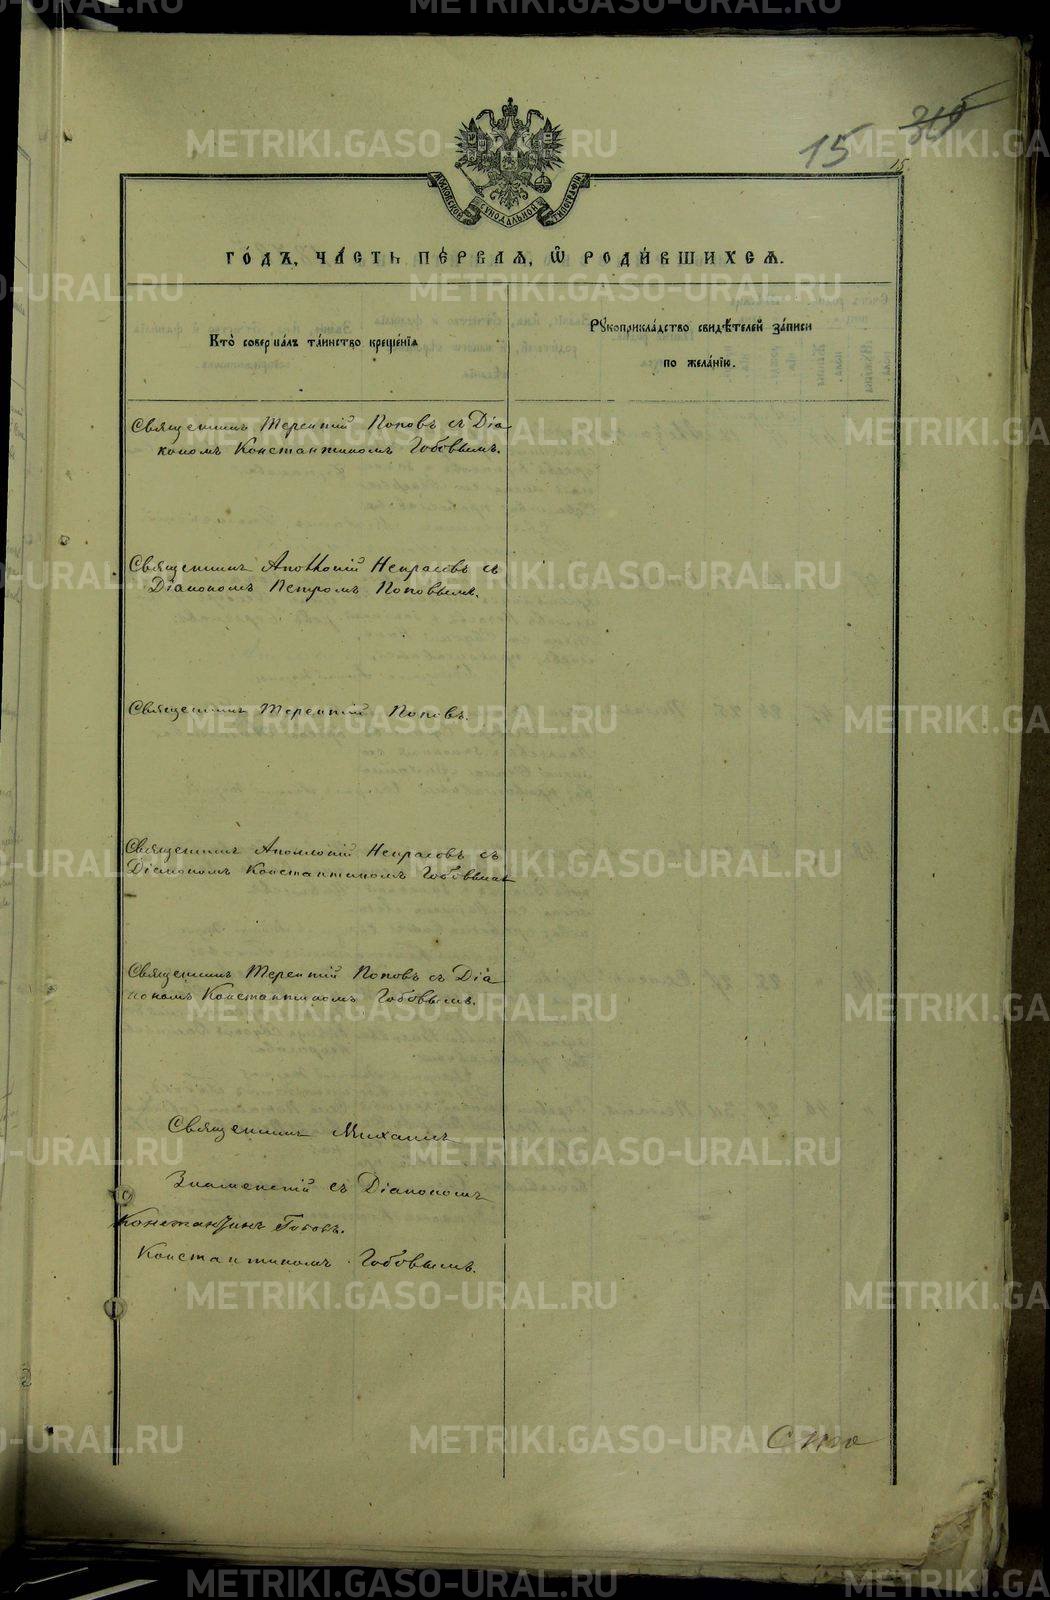 METRIKI.GASO-URAL.RU
15
15
МОСКОВСКОЙ СѴНОДАЛЬНОЙ ТИПОГРАФІИ
ГО́ДЪ, ЧА́СТЬ ПЕ́РВАѦ, Ѡ҆ РОДИ́ВШИХСѦ.
Кто̀ соверша́лъ та́инство креще́нїѧ
Рꙋкоприкла́дство свидѣ́телей за́писи
по жела́нїю.
Священникъ Терентій Поповъ съ Діа
кономъ Константиномъ Гобовымъ.
Священникъ Некрасовъ съ
Діакономъ Петромъ Поповымъ.
Священникъ Терентій Поповъ.
Священникъ Некрасовъ съ
Діакономъ Константиномъ Гобовымъ
Священникъ Терентій Поповъ съ Діа
кономъ Константиномъ Гобовымъ.
Священникъ Михаилъ
Знаменскій съ Діакономъ
Константинъ Гобовъ.
Константиномъ Гобовымъ.